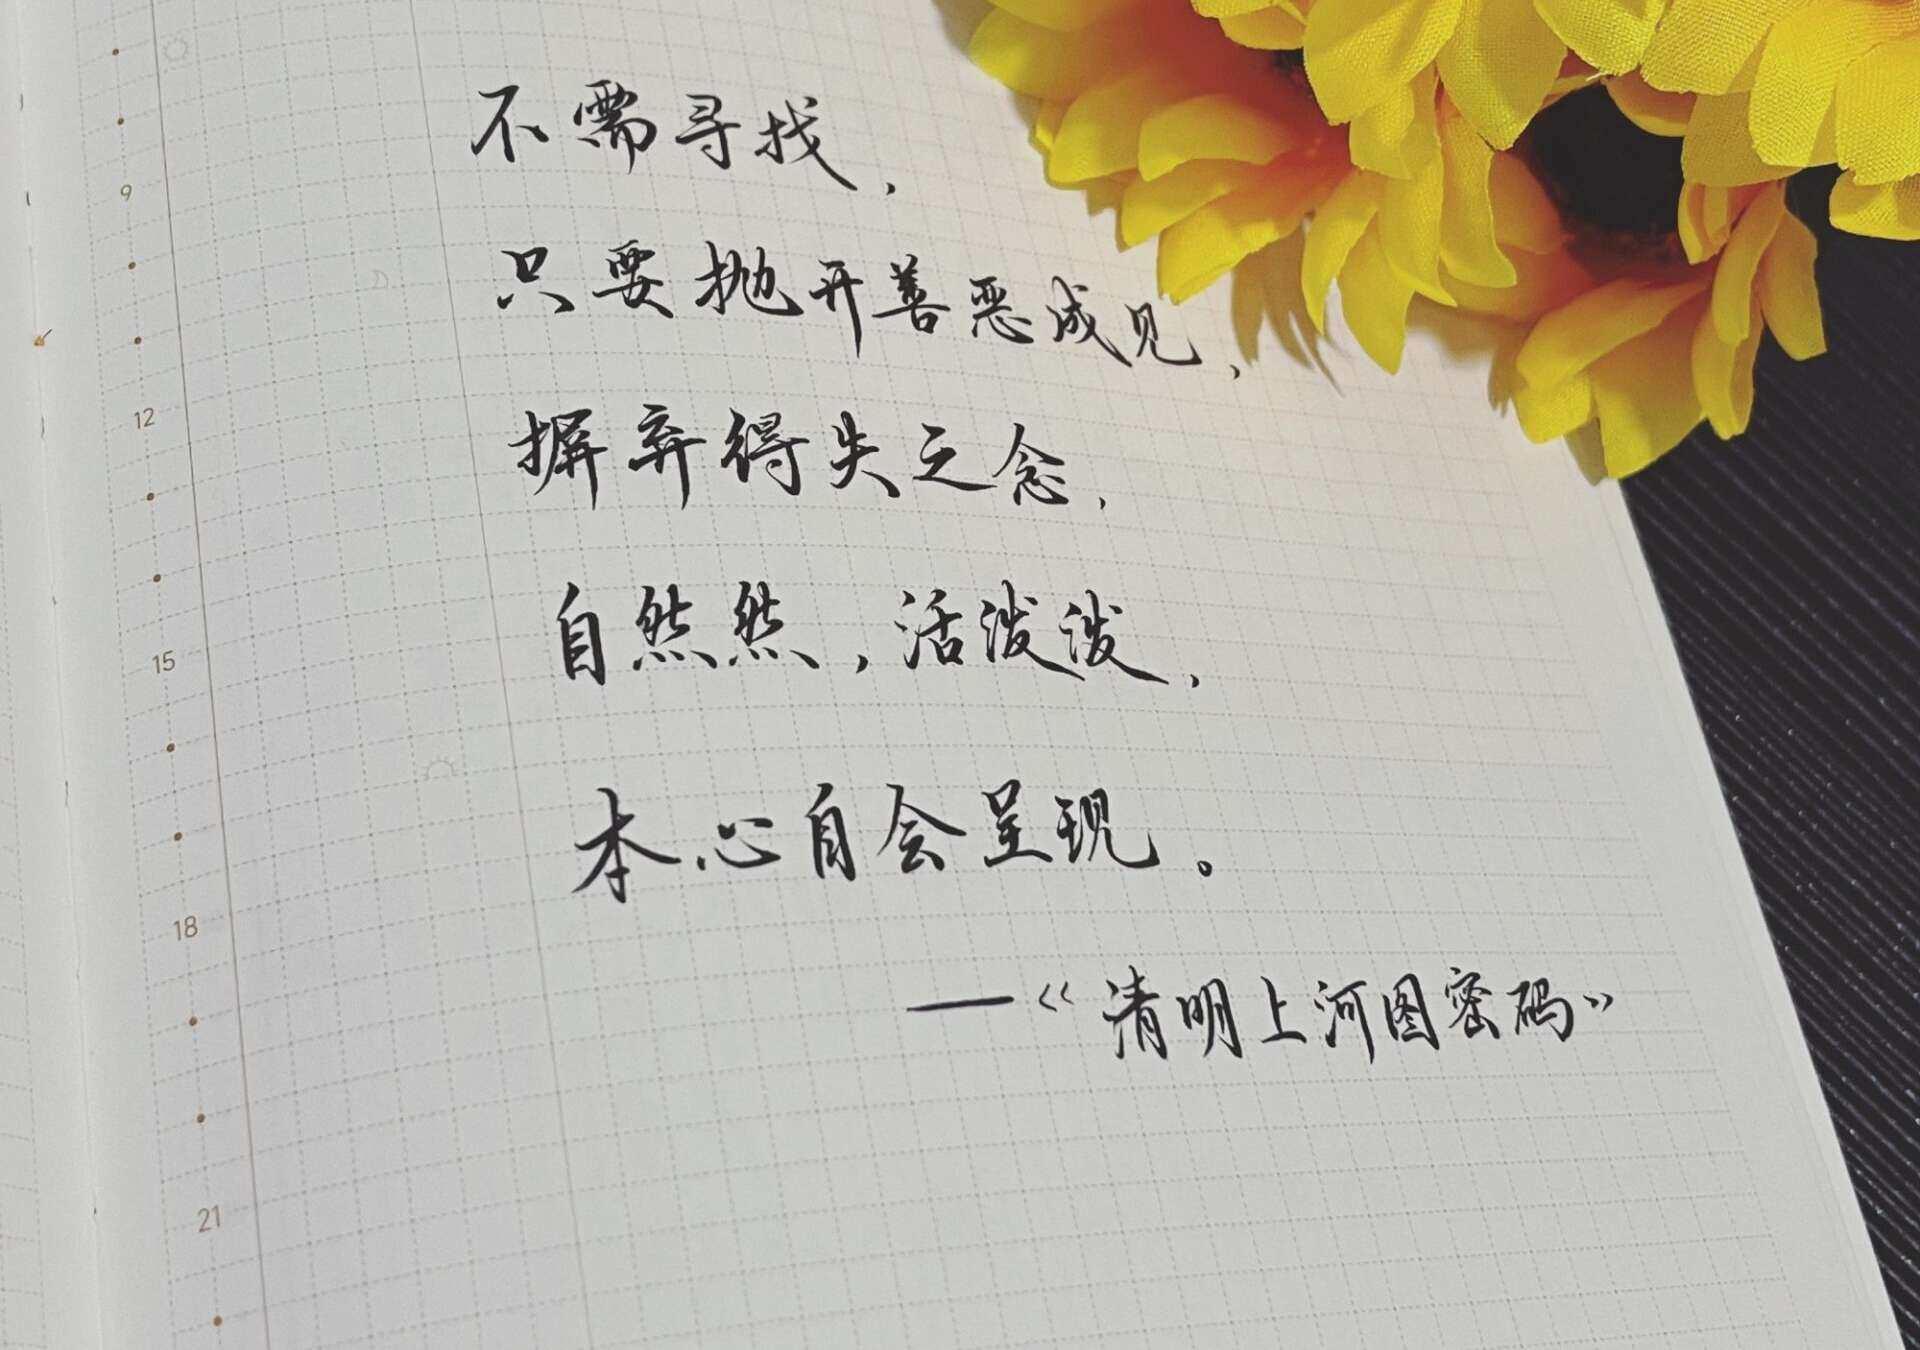 不需寻找，
只要抛开善恶成见，
摒弃得失之念，
自然然，活泼泼，
本心自会呈现。
——《清明上河图密码》
9
12
15
18
21